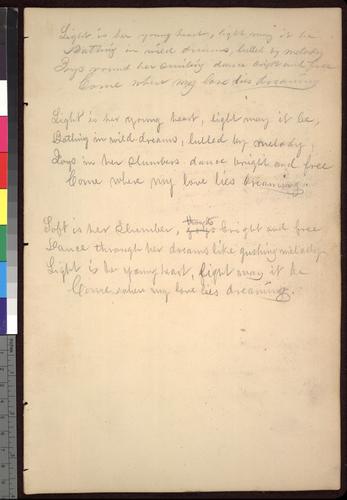 Light is her young heart, light may it be
Bathing in wild dreams, lulled by melody
Joys round her smiling dance bright and free
Come where my love lies dreaming
Light is her young heart, light may it be,
Bathing in wild dreams, lulled by melody,
Joys in her slumbers dance bright and free
Come where my love lies dreaming.
Soft is her slumber, thoughts bright and free
Dance through her dreams like gushing melody
Light is her young heart, light may it be
Come where my love lies dreaming.